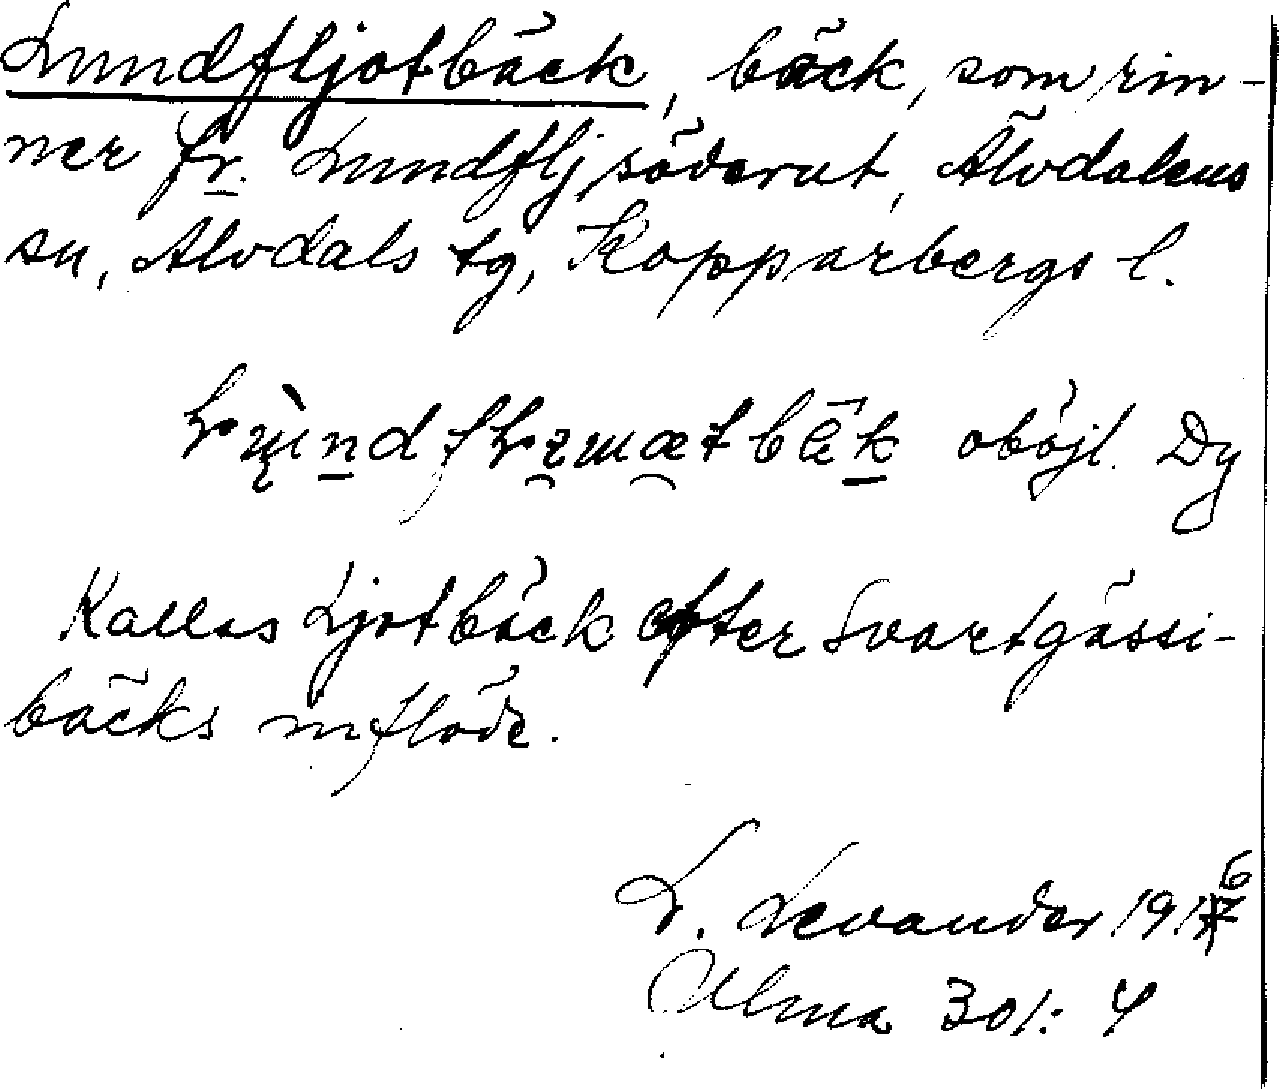 Lundfljotbäck, bäck, som rin-
ner fr. Lundflj söderut, Älvdalens
sn, Älvdals tg, Kopparbergs l.
oböjl. Dy
Kallas Ljotbäck efter Svartgässi-
bäcks inflöde.
L. Levander 1916
Ulma 301: 4